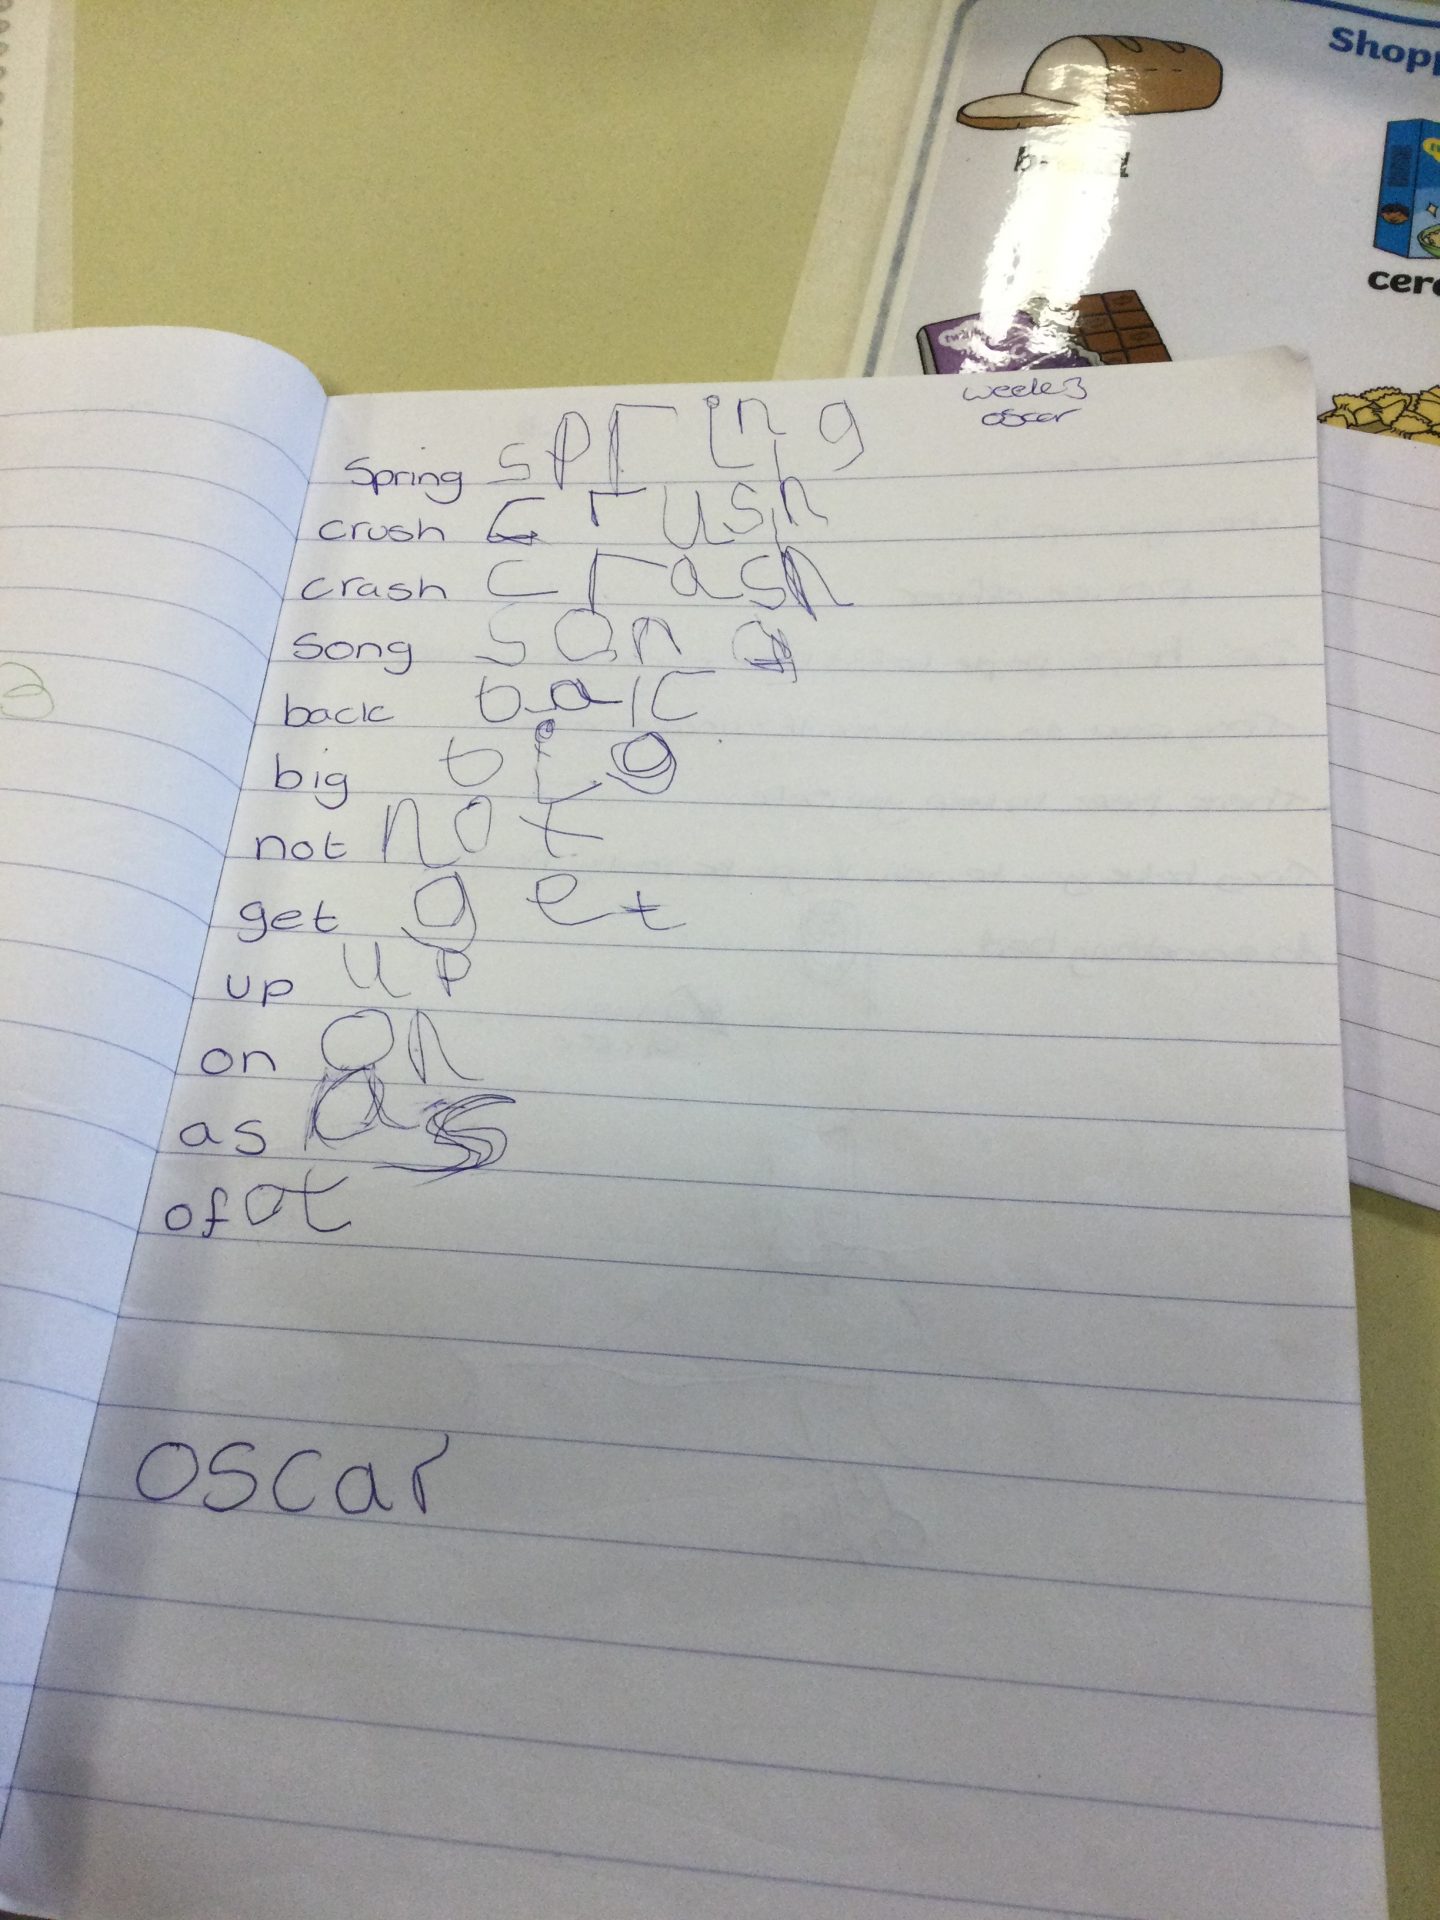 Shopp
bread
cere
week 3
oscar
Spring spring
crush crush
crash crash
song song
back baic
big big
not not
get get
up up
on on
as as
of ot
oscar